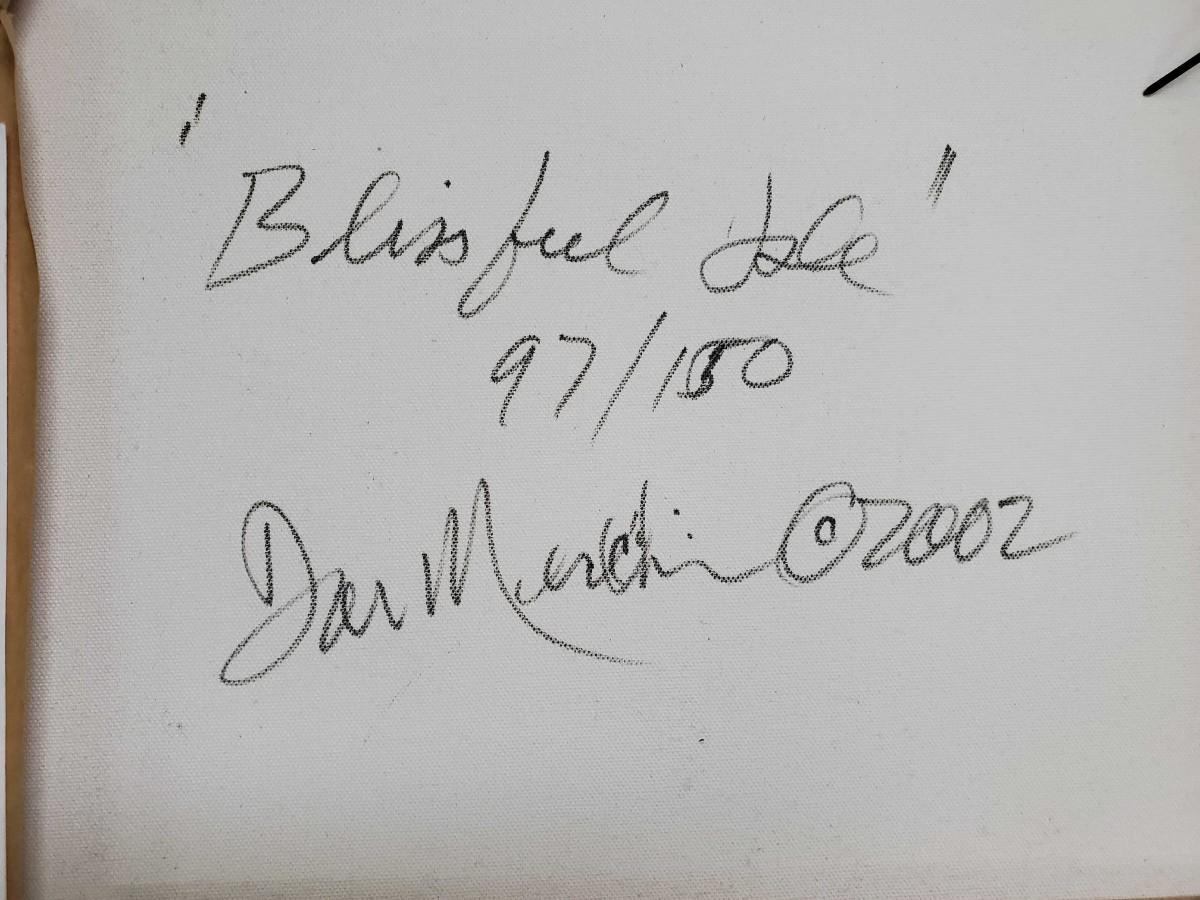 "Blissful Isle"
97/150
Dan Mackin ©2002